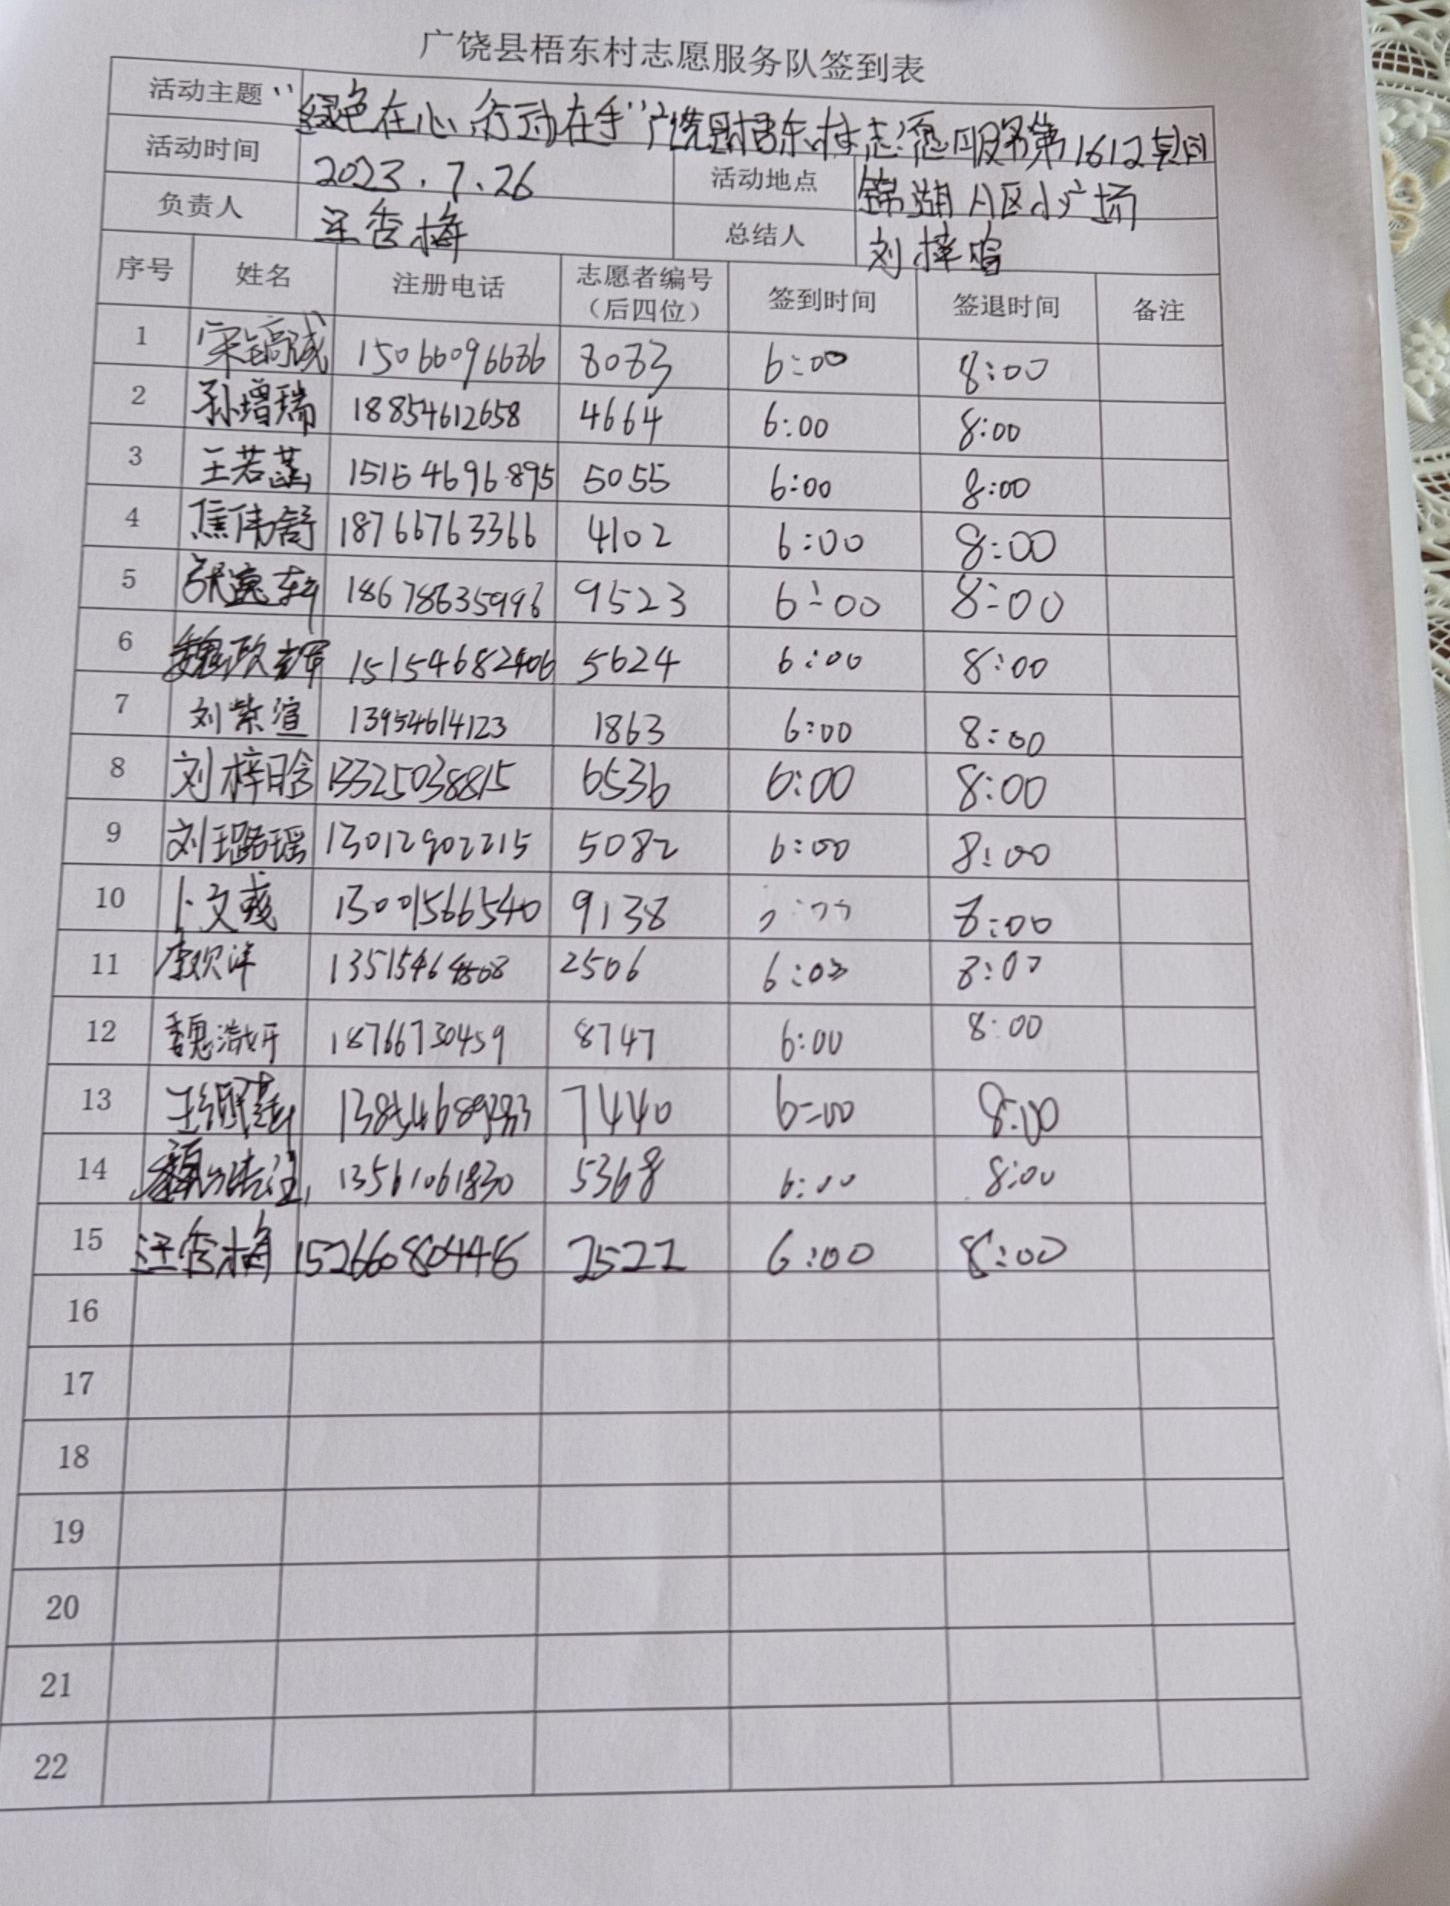 广饶县梧东村志愿服务队签到表
活动主题 “绿色在心 行动在手”广饶县梧东村志愿服务第1612期
活动时间 2023.7.26 活动地点 锦湖A区小广场
负责人 汪香梅 总结人 刘梓晗
序号 姓名 注册电话 志愿者编号（后四位） 签到时间 签退时间 备注
1 宋镐诚 15066096686 8083 6:00 8:00
2 孙增瑞 18854612658 4664 6:00 8:00
3 王若菡 15154696895 5055 6:00 8:00
4 焦伟舒 18766763366 4102 6:00 8:00
5 张逸轩 18678635996 9523 6:00 8:00
6 魏政辉 15154682406 5624 6:00 8:00
7 刘紫渲 13954614123 1863 6:00 8:00
8 刘梓晗 13325038815 6536 6:00 8:00
9 刘璐瑶 13012902215 5082 6:00 8:00
10 卜文彧 13001566540 9138 8:00
11 李欢洋 2506 6:00 8:00
12 魏浩妍 18766730459 8747 6:00 8:00
13 7440 6:00 8:00
14 13561061830 5368 6:00 8:00
15 汪香梅 15266080446 2522 6:00 8:00
16
17
18
19
20
21
22